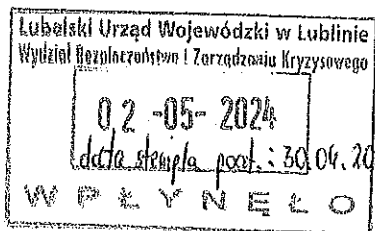 Lubelski Urząd Wojewódzki w Lublinie
Wydział Bezpieczeństwa i Zarządzania Kryzysowego
02 -05- 2024
data stempla poczt.: 30.04.20
WPŁYNĘŁO